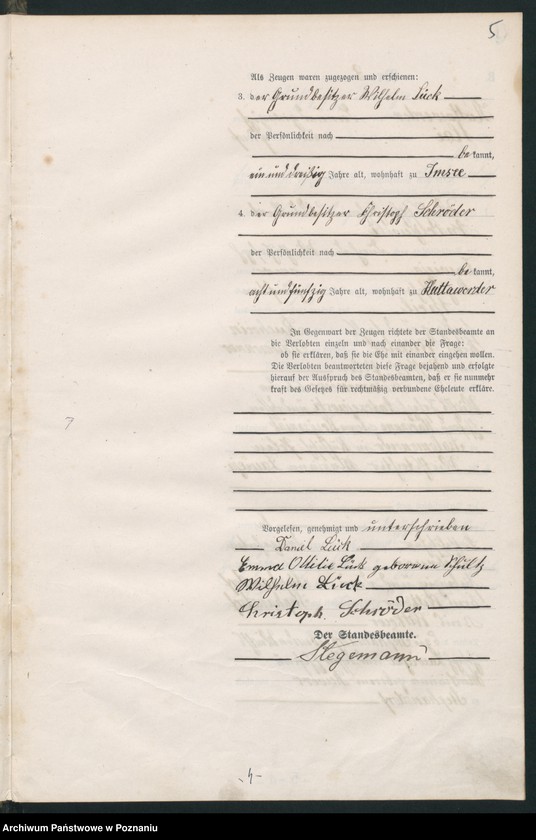 5
Als Zeugen waren zugezogen und erschienen:
3. der Grundbesitzer Wilhelm Lück
der Persönlichkeit nach
bekannt,
ein und dreißig Jahre alt, wohnhaft zu Imsee
4. der Grundbesitzer Christoph Schröder
der Persönlichkeit nach
bekannt,
acht und fünfzig Jahre alt, wohnhaft zu Huttawerder
In Gegenwart der Zeugen richtete der Standesbeamte an
die Verlobten einzeln und nach einander die Frage:
ob sie erklären, daß sie die Ehe mit einander eingehen wollen.
Die Verlobten beantworteten diese Frage bejahend und erfolgte
hierauf der Ausspruch des Standesbeamten, daß er sie nunmehr
kraft des Gesetzes für rechtmäßig verbundene Eheleute erkläre.
Vorgelesen, genehmigt und unterschrieben
Daniel Lück
Emma Ottilie Lück geborene Schultz
Wilhelm Lück
Christoph Schröder
Der Standesbeamte.
Stegemann
Archiwum Państwowe w Poznaniu